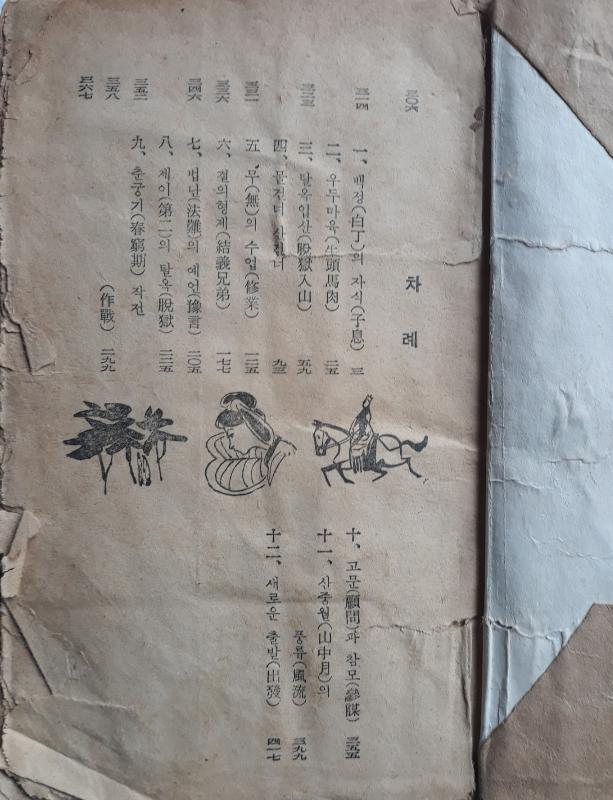 三〇六
三一四
三三六
三四六
三五二
三五八
三六七
차례
一、백정(白丁)의 자식(子息) 三
二、우두마육(牛頭馬肉) 二五
三、탈옥입산(脫獄入山) 五九
四、 九三
五、무(無)의 수업(修業) 一二五
六、결의형제(結義兄弟) 一七七
七、법난(法難)의 예언(豫言) 二〇五
八、제이(第二)의 탈옥(脫獄) 二三五
九、춘궁기(春窮期) 작전
(作戰) 二九九
十、고문(顧問)과 참모(參謀) 三五五
十一、산중월(山中月)의
풍류(風流) 三九九
十二、새로운 출발(出發) 四一七